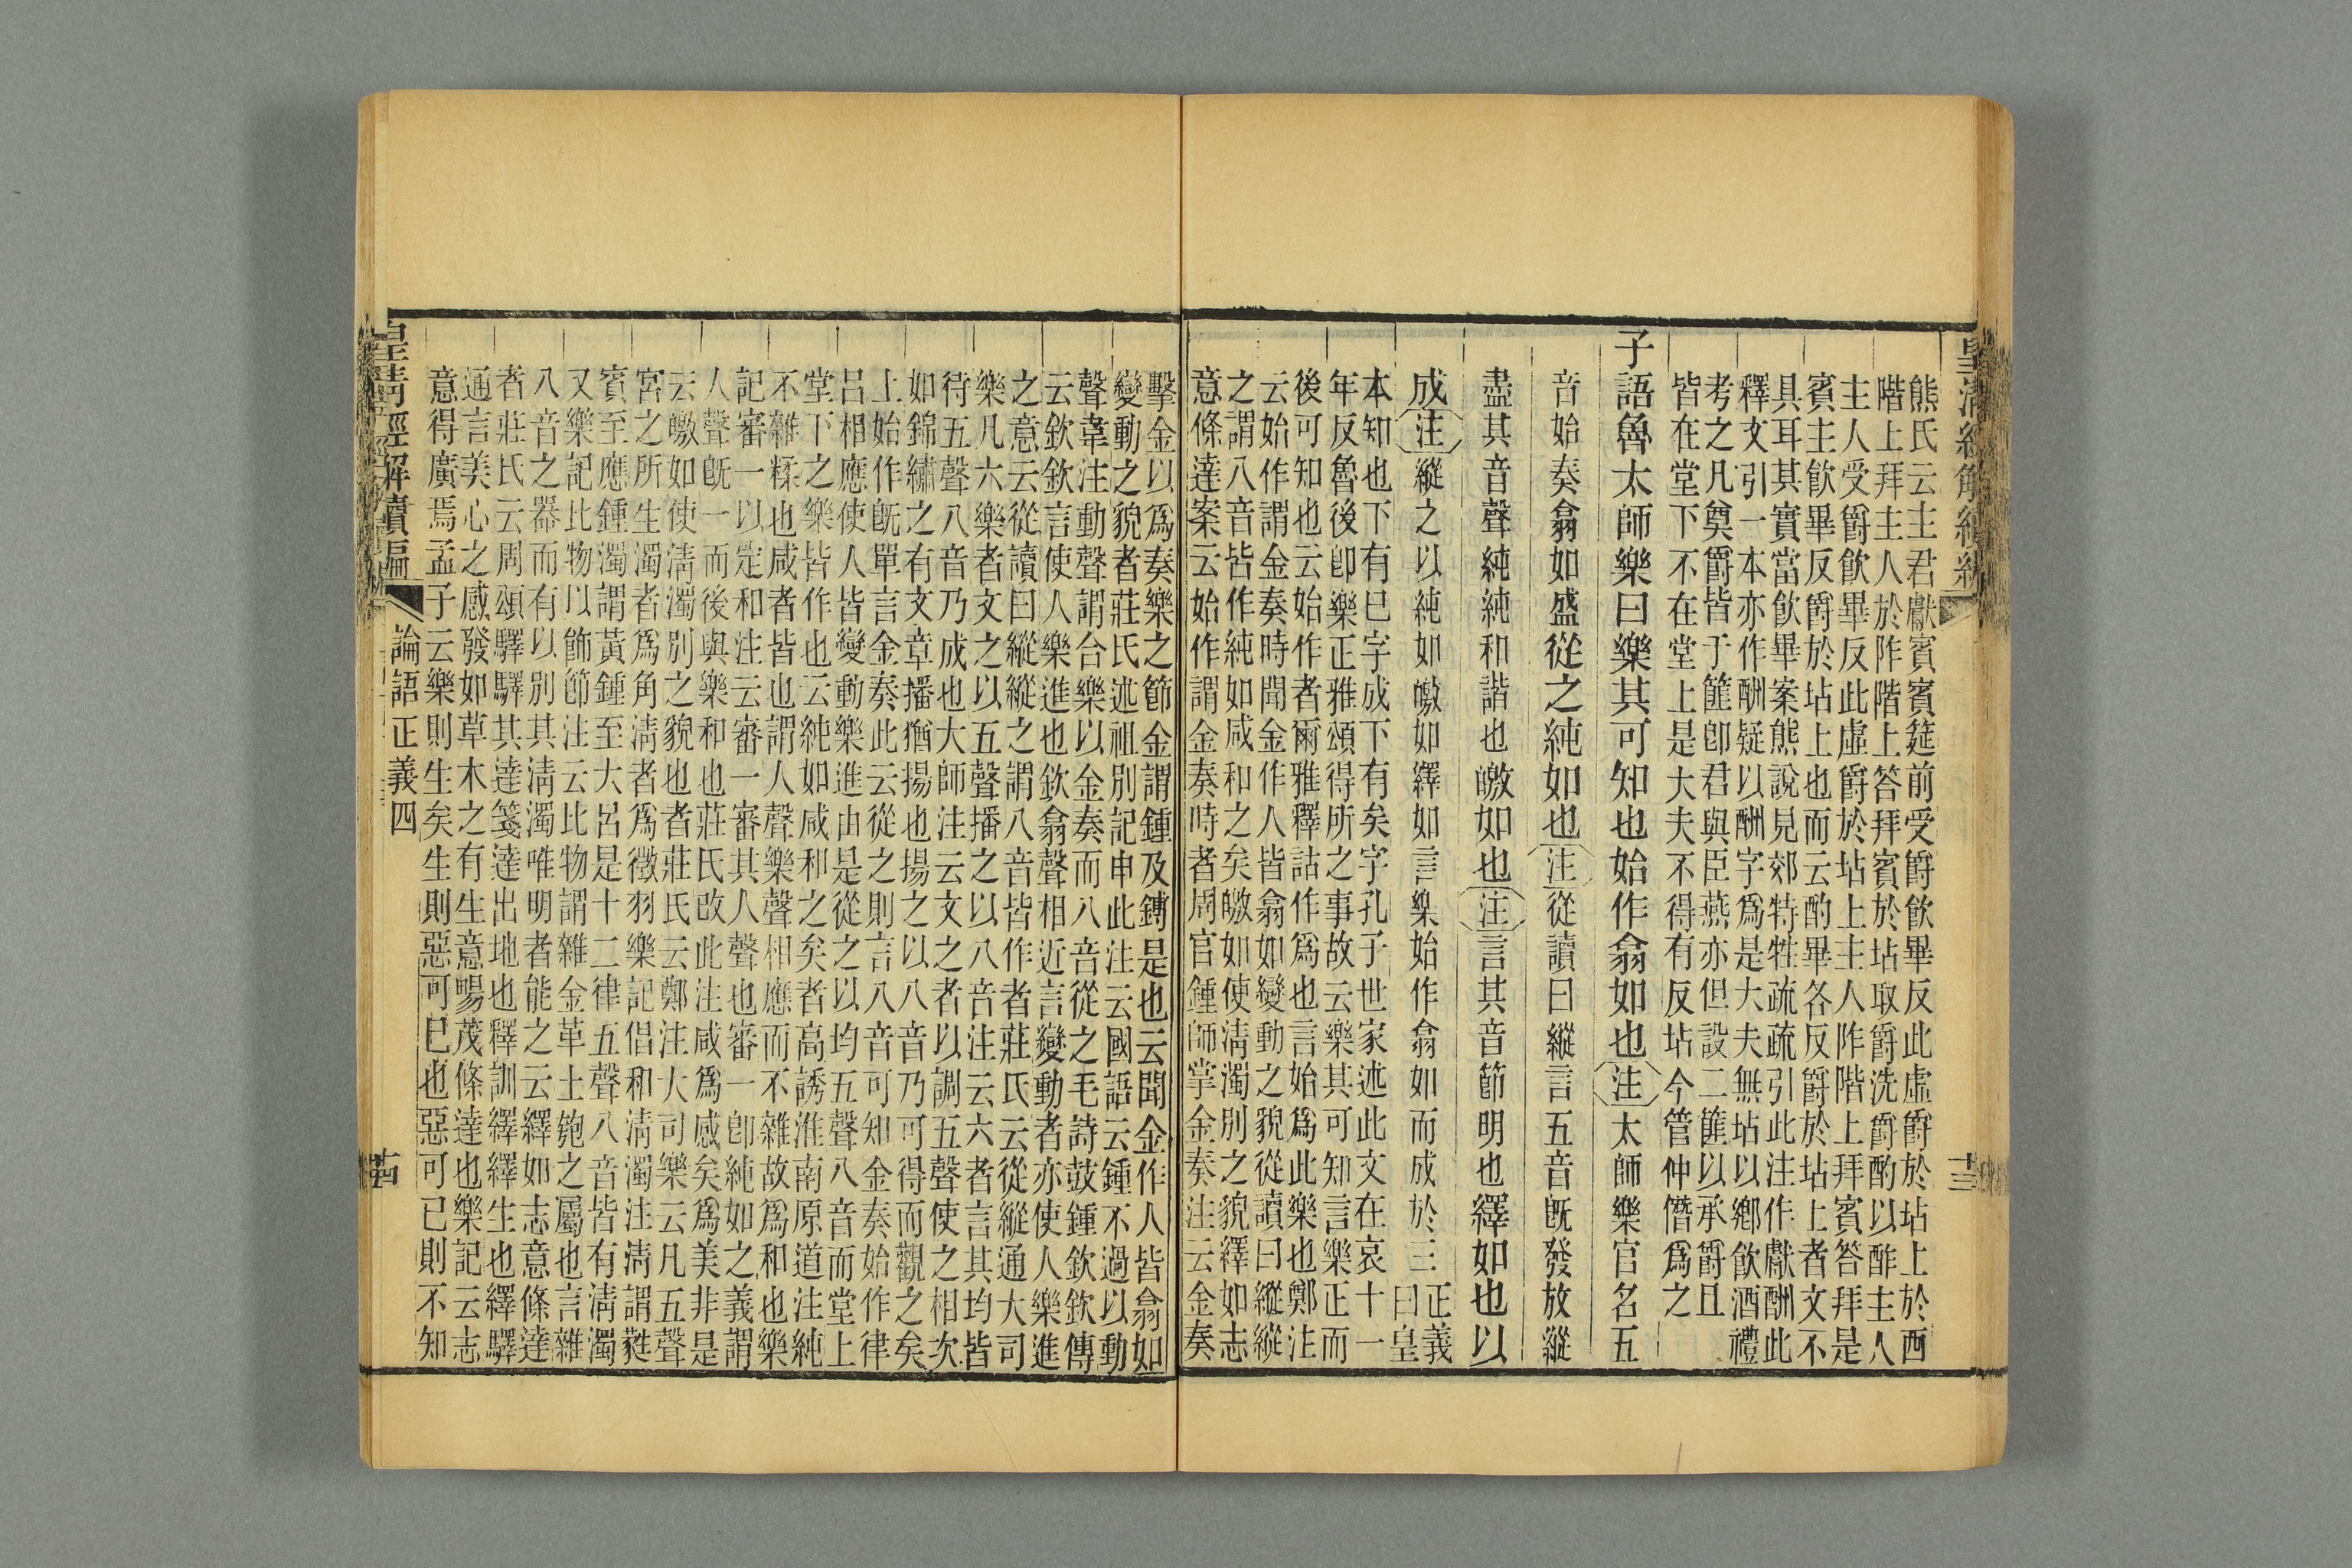 皇清經解續編
熊氏云主君獻賓賓筵前受爵飲畢反此虛爵於坫上於西
階上拜主人於阼階上答拜賓於坫取爵洗爵酌以酢主人
主人受爵飲畢反此虛爵於坫上主人阼階上拜賓答拜是
賓主飲畢反爵於坫上也而云酌畢各反爵於坫上者文不
具耳其實當飲畢案熊說見郊特牲疏疏引此注作獻酬此
釋文引一本亦作酬疑以酬字爲是大夫無坫以鄉飲酒禮
考之凡奠爵皆于篚卽君與臣燕亦但設二篚以承爵且
皆在堂下不在堂上是大夫不得有反坫今管仲僭爲之
子語魯太師樂曰樂其可知也始作翕如也注太師樂官名五
音始奏翕如盛從之純如也注從讀曰縱言五音旣發放縱
盡其音聲純純和諧也皦如也注言其音節明也繹如也以
成注縱之以純如皦如繹如言樂始作翕如而成於三正義
曰皇
本知也下有已字成下有矣字孔子世家述此文在哀十一
年反魯後卽樂正雅頌得所之事故云樂其可知言樂正而
後可知也云始作者爾雅釋詁作爲也言始爲此樂也鄭注
云始作謂金奏時聞金作人皆翕如變動之貌從讀曰縱縱
之謂八音皆作純如咸和之矣皦如使淸濁別之貌繹如志
意條達案云始作謂金奏時者周官鍾師掌金奏注云金奏
十三
擊金以爲奏樂之節金謂鍾及鎛是也云聞金作人皆翕如
變動之貌者莊氏述祖別記申此注云國語云鍾不過以動
聲韋注動聲謂合樂以金奏而八音從之毛詩鼓鍾欽欽傳
云欽欽言使人樂進也欽翕聲相近言變動者亦使人樂進
之意云從讀曰縱縱之謂八音皆作者莊氏云從縱通大司
樂凡六樂者文之以五聲播之以八音注云六者言其均皆
待五聲八音乃成也大師注云文之者以調五聲使之相次
如錦繡之有文章播猶揚也揚之以八音乃可得而觀之矣
上始作旣單言金奏此云從之則言八音可知金奏始作律
呂相應使人皆變動樂進由是從之以均五聲八音而堂上
堂下之樂皆作也云純如咸和之矣者高誘淮南原道注純
不雜糅也咸者皆也謂人聲樂聲相應而不雜故爲和也樂
記審一以定和注云審一審其人聲也審一卽純如之義謂
人聲旣一而後與樂和也莊氏改此注咸爲感矣爲美非是
云皦如使淸濁別之貌也者莊氏云鄭注大司樂云凡五聲
宮之所生濁者爲角淸者爲徵羽樂記倡和淸濁注淸謂蕤
賓至應鍾濁謂黃鍾至大呂是十二律五聲八音皆有淸濁
又樂記比物以飾節注云比物謂雜金革土匏之屬也言雜
八音之器而有以別其淸濁唯明者能之云繹如志意條達
者莊氏云周頌驛驛其達箋達出地也釋訓繹繹生也繹驛
通言美心之感發如草木之有生意暢茂條達也樂記云志
意得廣焉孟子云樂則生矣生則惡可已也惡可已則不知
皇淸經解續編
論語正義四
古